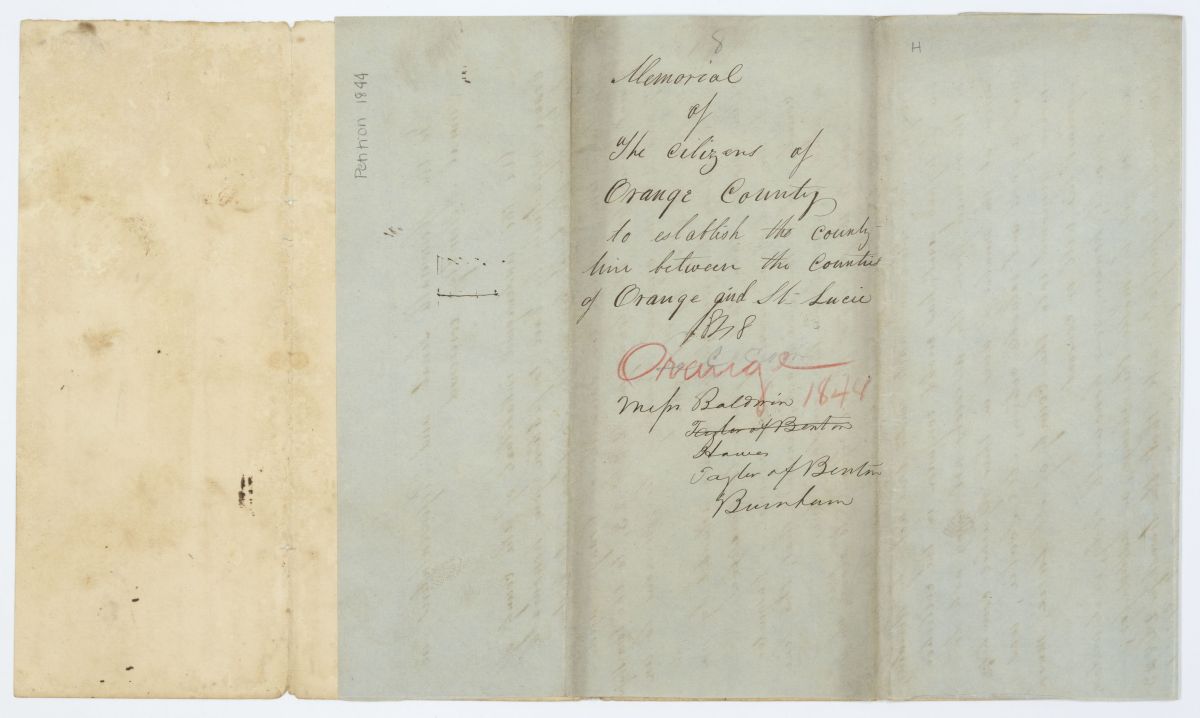 Petition 1844
8
H
Memorial
of
The citizens of
Orange County
to establish the county
line between the counties
of Orange and St Lucie
1848
Orange
1848
Mess Baldwin
Taylor of Benton
Hawes
Taylor of Benton
Burnham